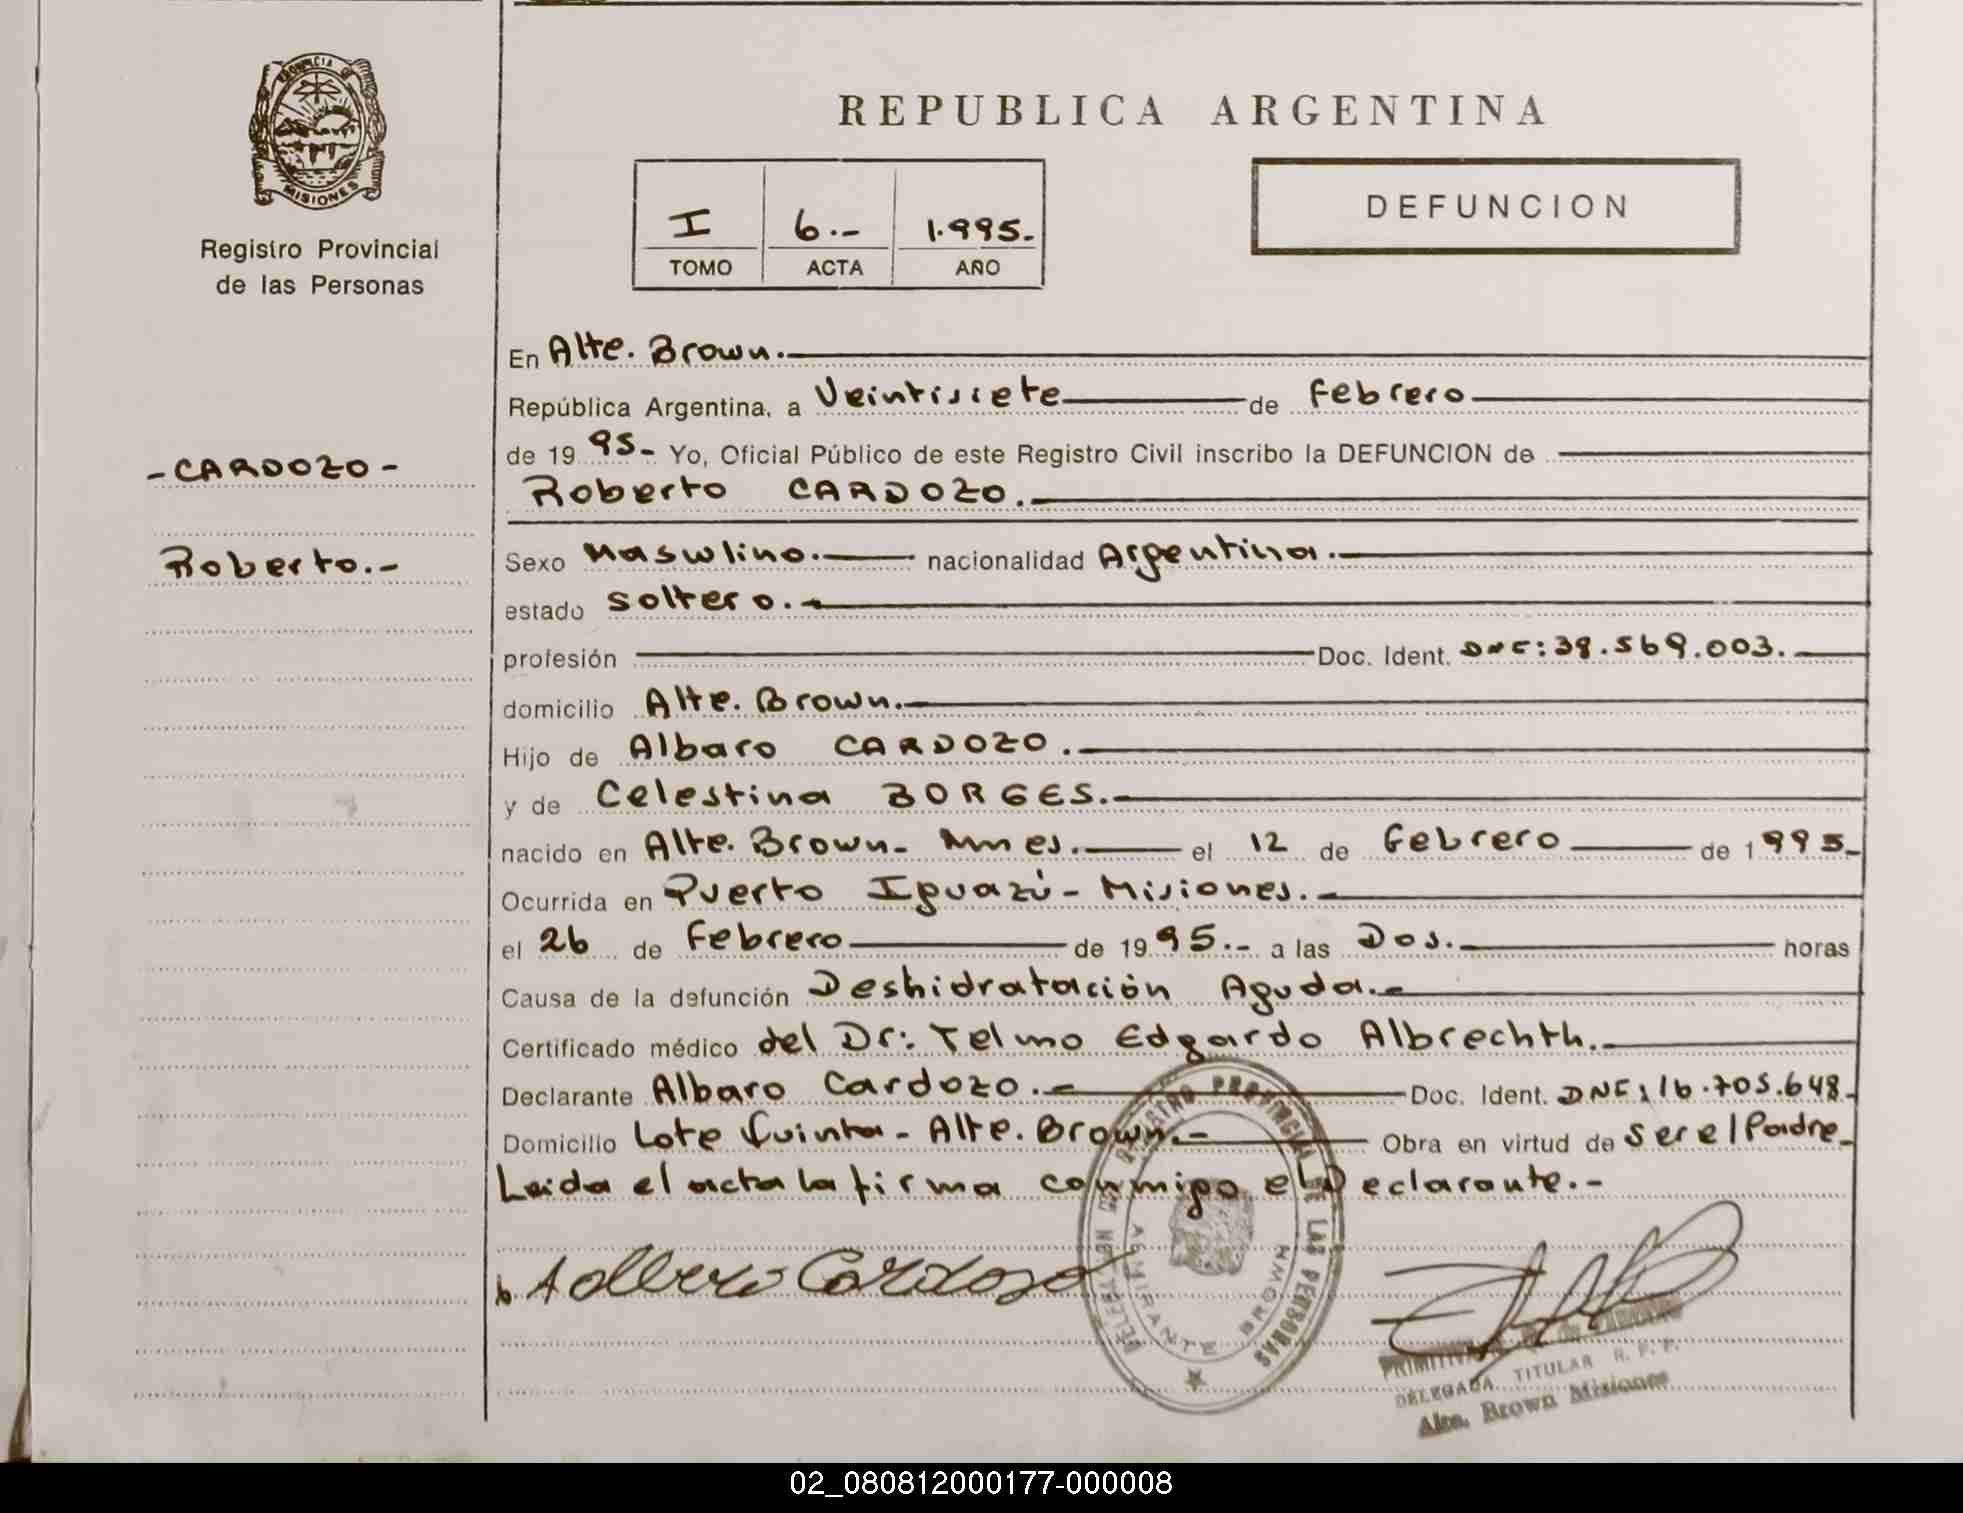 PROVINCIA DE
MISIONES
Registro Provincial
de las Personas
REPUBLICA ARGENTINA
I 6.- 1.995.-
TOMO ACTA AÑO
DEFUNCION
En Alte. Brown.
República Argentina, a Veintisiete de Febrero
de 19 95- Yo, Oficial Público de este Registro Civil inscribo la DEFUNCION de
-CARDOZO-
Roberto CARDOZO.
Roberto.-
Sexo Masculino. nacionalidad Argentina.
estado Soltero.
profesión Doc. Ident. DNI: 38.569.003.
domicilio Alte. Brown.
Hijo de Albaro CARDOZO.
y de Celestina BORGES.
nacido en Alte. Brown- Mnes. el 12 de Febrero de 1995-
Ocurrida en Puerto Iguazú- Misiones.
el 26 de Febrero de 1995.- a las Dos. horas
Causa de la defunción Deshidratación Aguda.
Certificado médico del Dr: Telmo Edgardo Albrechth.
Declarante Albaro Cardozo. Doc. Ident. DNI: 16.705.648-
Domicilio Lote Quinta- Alte. Brown.- Obra en virtud de Ser el Padre-
Leida el acta la firma conmigo el Declarante.-
Cardozo
REGISTRO PROVINCIAL DE LAS PERSONAS
ALMIRANTE BROWN
DELEGADA TITULAR R. P. P.
Alte. Brown Misiones
02_080812000177-000008